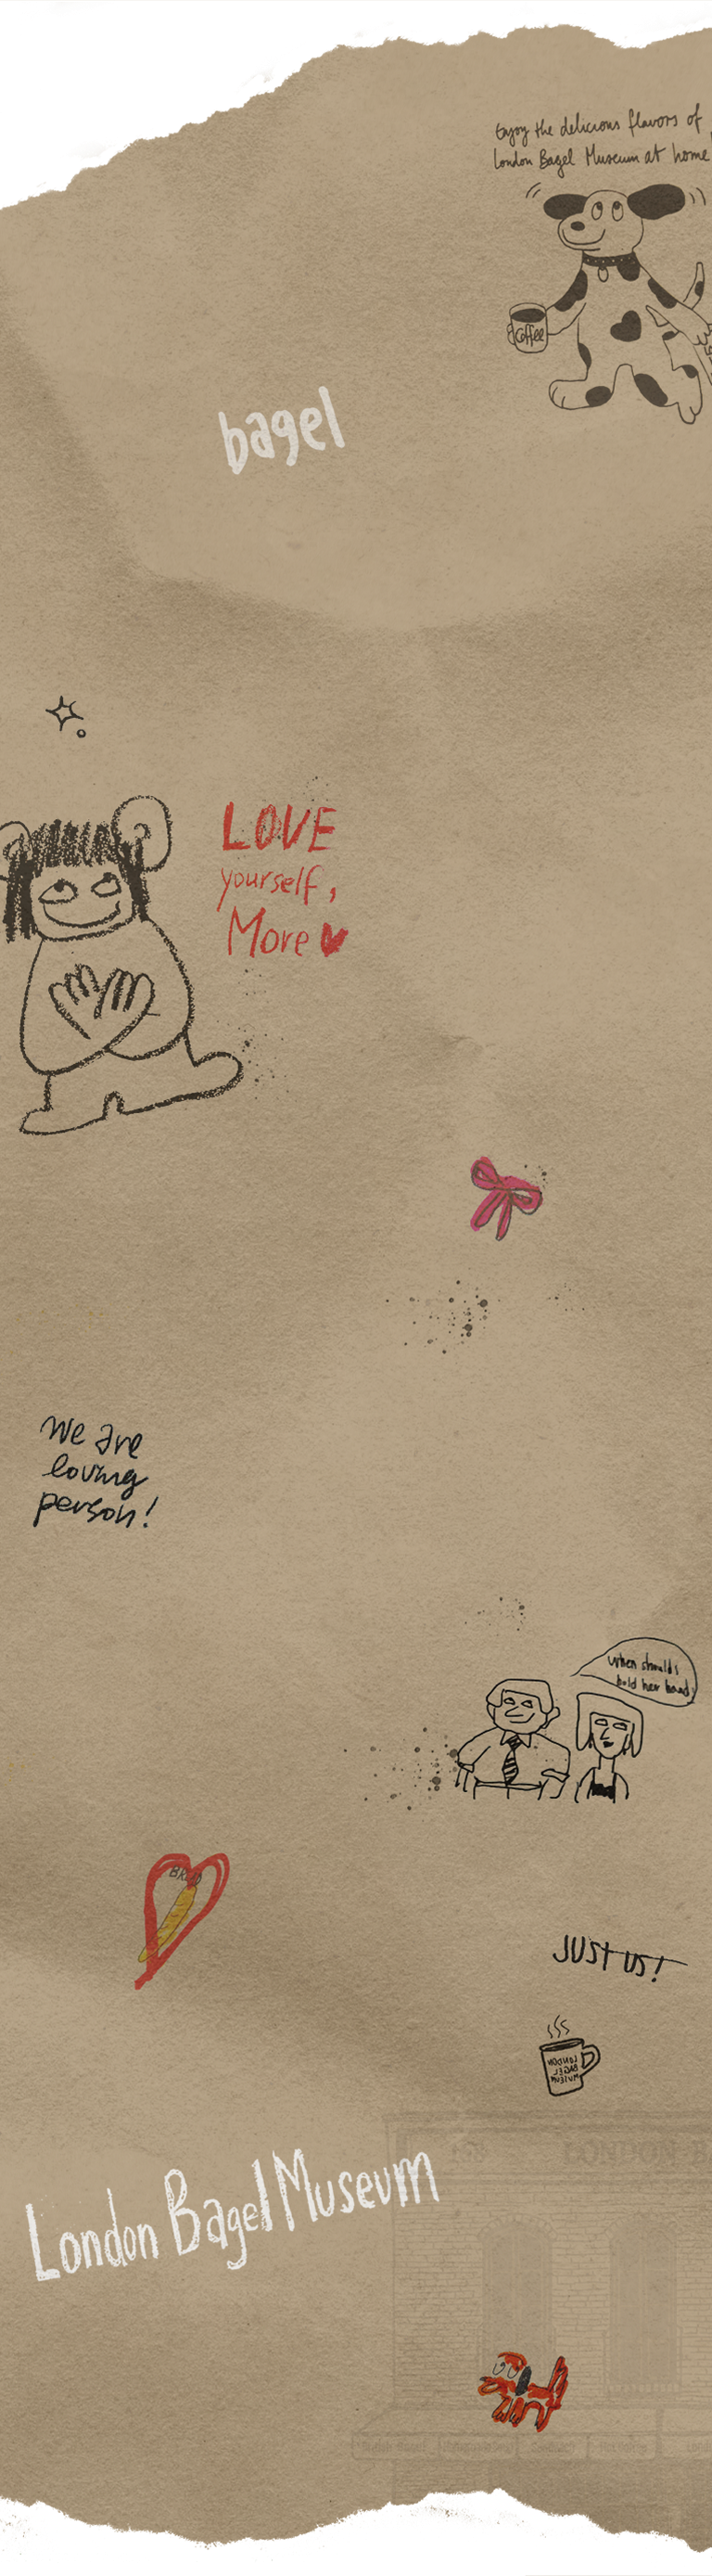 Enjoy the delicious flavors of
London Bagel Museum at home
Coffee
bagel
LOVE
yourself,
More
We are
loving
person!
when should i
hold her hand
BREAD
JUST US!
LONDON
BAGEL
MUSEUM
LONDON BA
London Bagel Museum